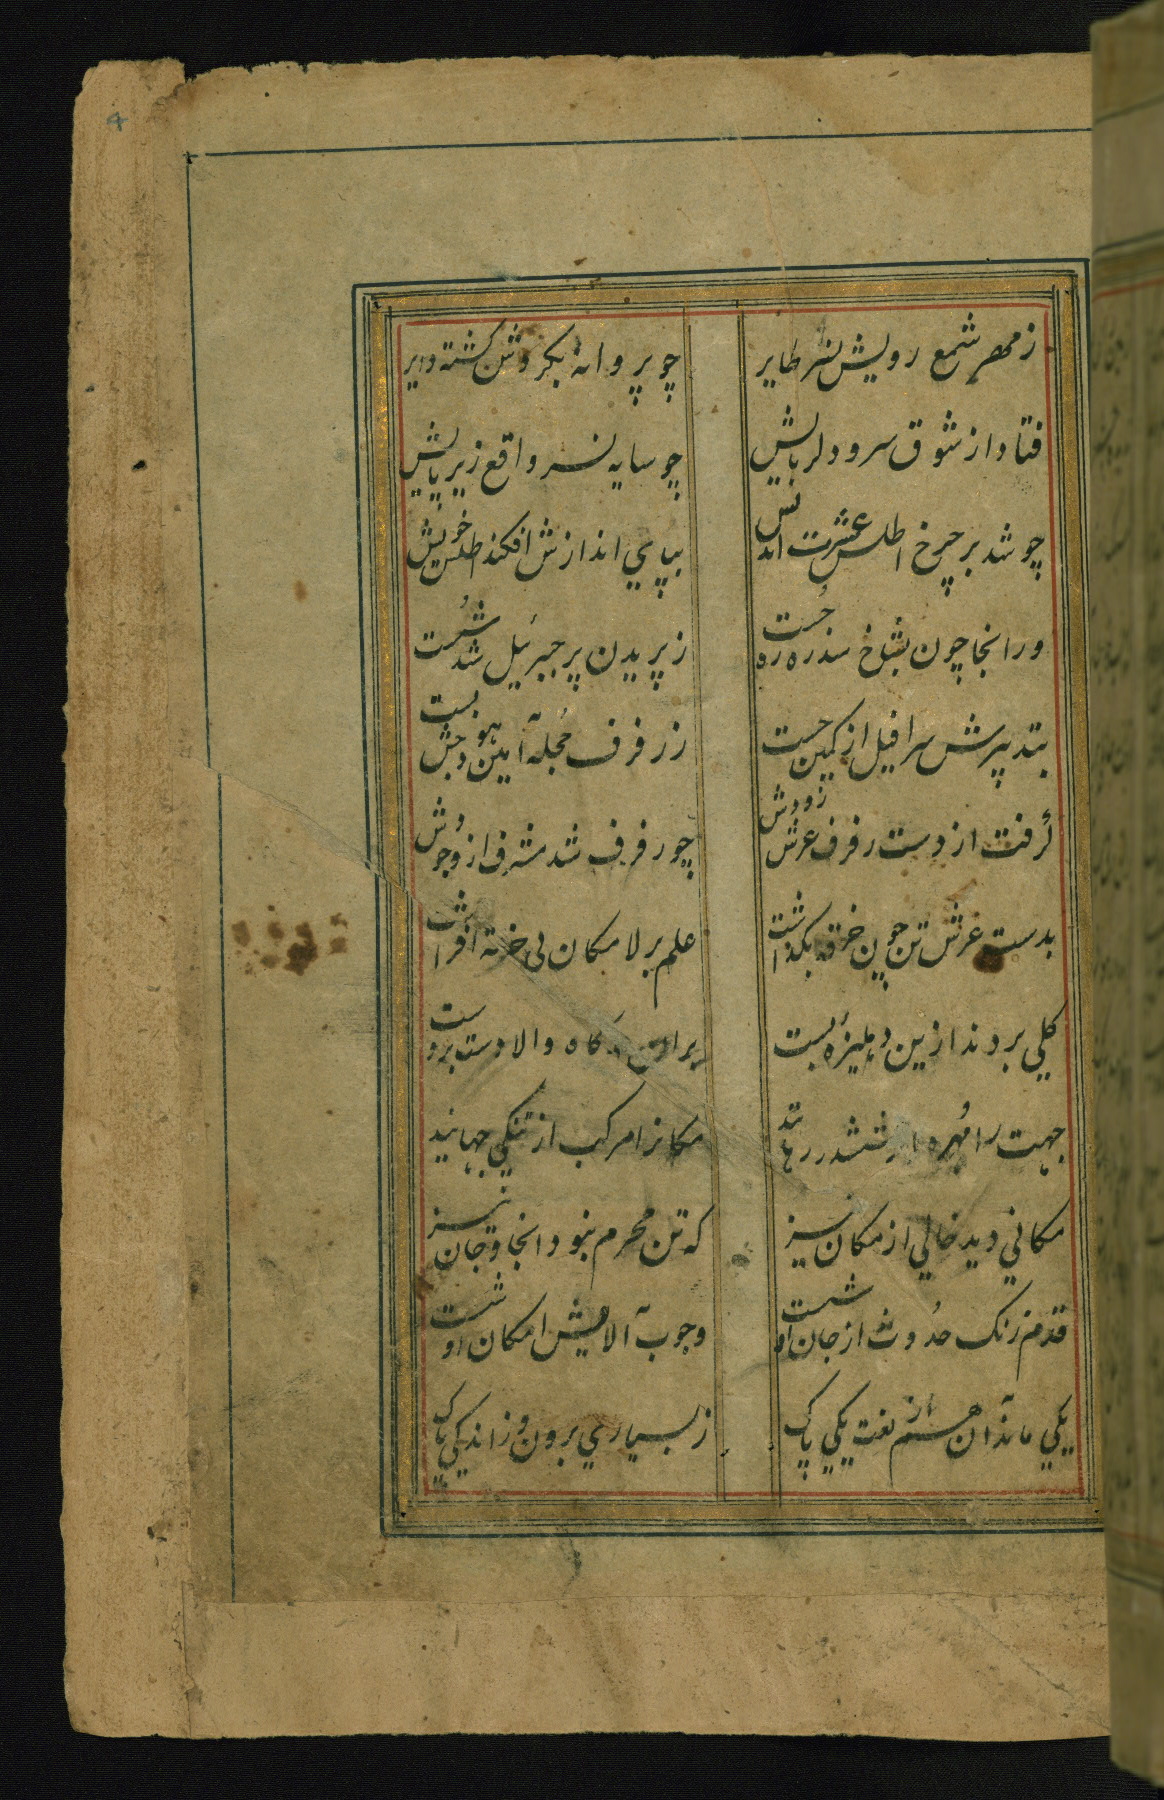 ز مهر شمع رویش نسر طایر چو پروانه بکردش کشته دایر
فتاد از شوق سرو دلربایش چو سایه نسر واقع زیر پایش
چو شد بر چرخ اطلس عشرت اندیش بپای اندازش افکند اطلس خویش
ورانجا چون بشاخ سدره ره جست ز پریدن پر جبرئیل شد سست
بتدبیرش سرافیل از کمین جست ز رفرف آیین هودجش بست
گرفت از دست رفرف عرش زودش چو رفرف شد مشرف از وجودش
بدست عرش تن چون خرقه بگذاشت علم بر لامکان بی خرقه افراشت
کلی بردند ازین دهلیزۀ پست بران درگاه والا دست بردست
جهت را مهره از ششدر رهانید مکانرا مرکب از تنکی جهانید
مکانی دید خالی از مکان نیز که تن محرم نبود انجا و جان نیز
قدم زنک حدوث از جان او شست وجوب آلایش امکان او شست
یکی ماند آن هم از نعت یکی پاک ز بسیاری برون وز اندکی پاک